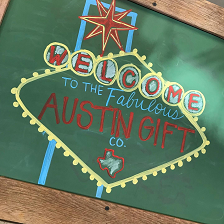 WELCOME
TO THE Fabulous
AUSTIN GIFT
CO.